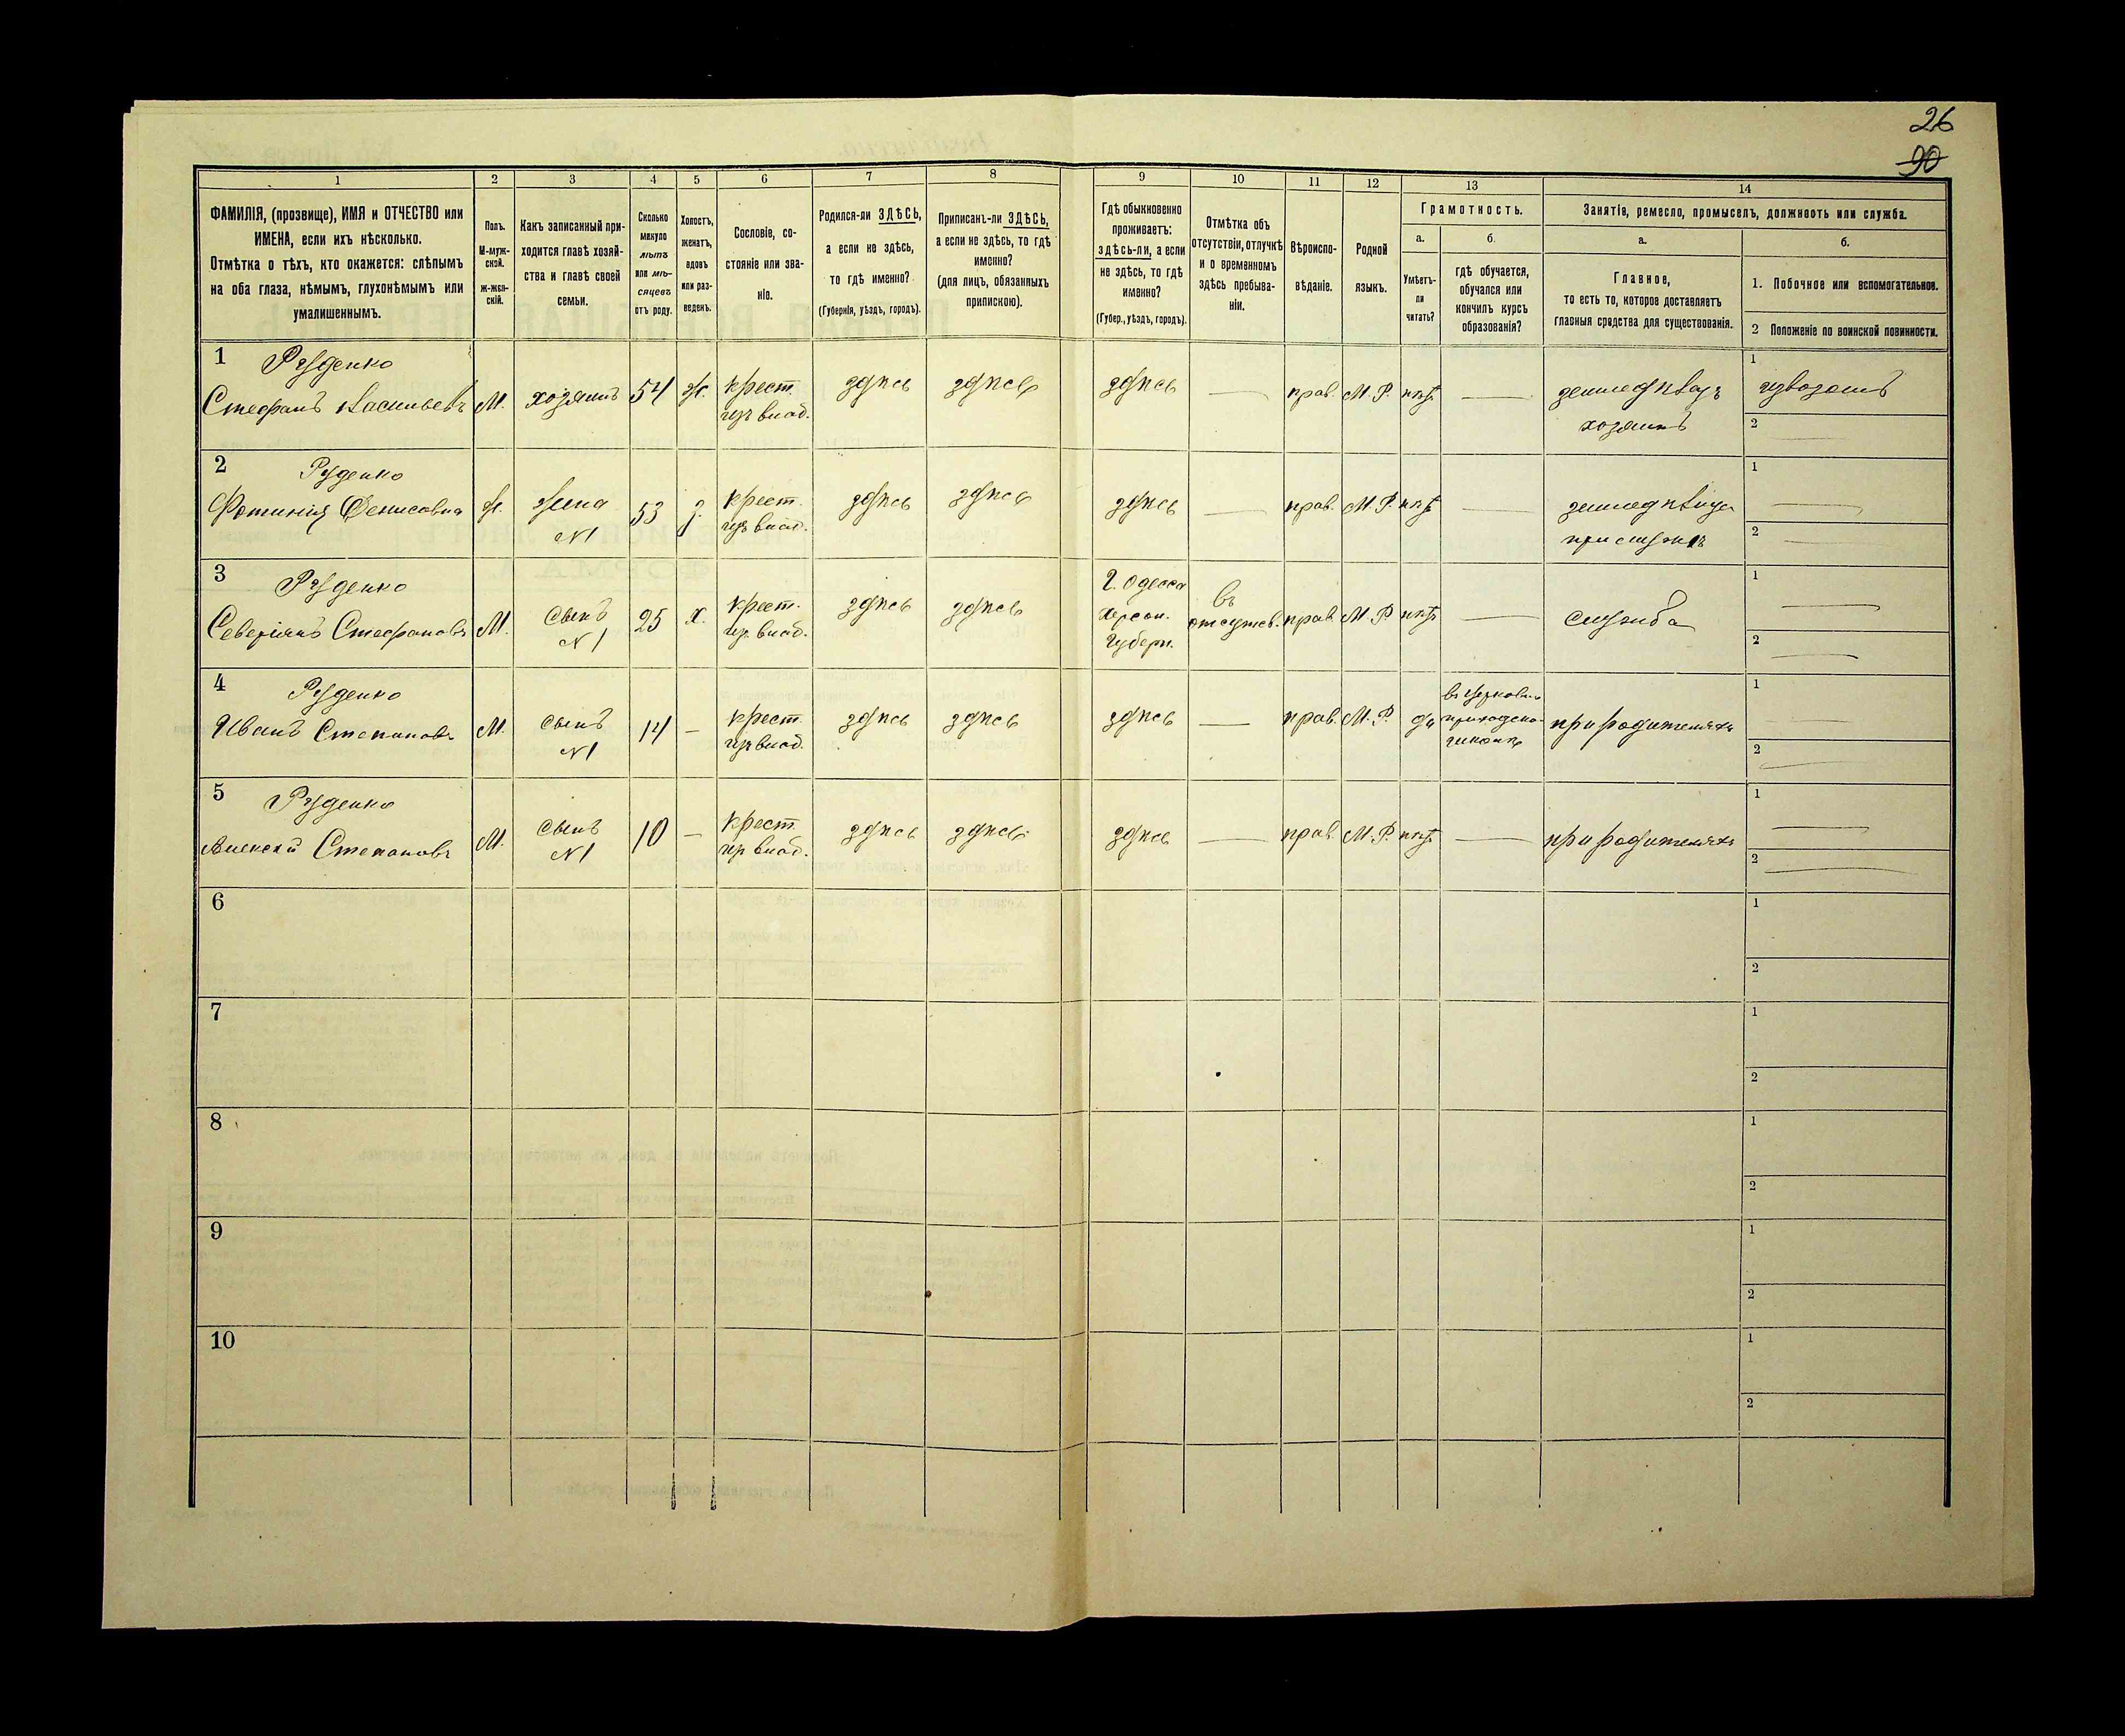 26
90
1
2
3
4
5
6
7
8
9
10
11
12
13
14
ФАМИЛІЯ, (прозвище), ИМЯ и ОТЧЕСТВО или
ИМЕНА, если ихъ нѣсколько.
Отмѣтка о тѣхъ, кто окажется: слѣпымъ
на оба глаза, нѣмымъ, глухонѣмымъ или
умалишеннымъ.
Полъ.
М-муж-
ской.
Ж-жен-
скій.
Какъ записанный при-
ходится главѣ хозяй-
ства и главѣ своей
семьи.
Сколько
минуло
лѣтъ
или мѣ-
сяцевъ
отъ роду.
Холостъ,
женатъ,
вдовъ
или раз-
веденъ.
Сословіе, со-
стояніе или зва-
ніе.
Родился-ли ЗДѢСЬ,
а если не здѣсь,
то гдѣ именно?
(Губернія, уѣздъ, городъ).
Приписанъ-ли ЗДѢСЬ,
а если не здѣсь, то гдѣ
именно?
(для лицъ, обязанныхъ
припискою).
Гдѣ обыкновенно
проживаетъ:
здѣсь-ли, а если
не здѣсь, то гдѣ
именно?
(Губер., уѣздъ, городъ).
Отмѣтка объ
отсутствіи, отлучкѣ
и о временномъ
здѣсь пребыва-
ніи.
Вѣроиспо-
вѣданіе.
Родной
языкъ.
Грамотность.
а.
Умѣетъ-
ли
читать?
б.
гдѣ обучается,
обучался или
кончилъ курсъ
образованія?
Занятіе, ремесло, промыселъ, должность или служба.
а.
Главное,
то есть то, которое доставляетъ
главныя средства для существованія.
б.
1. Побочное или вспомогательное.
2 Положеніе по воинской повинности.
1 Руденко
Стефанъ Васильевъ М. хозяинъ 54 ж. крест. здѣсь здѣсь здѣсь — прав. М.Р. нѣтъ — 1 извозомъ
изъ влад.
хозяинъ 2 —
2 Руденко
Фотинія Денисовна ж. жена 53 з. крест. здѣсь здѣсь здѣсь — прав. М.Р. нѣтъ — 1 —
N1 изъ влад.
2 —
3 Руденко
Северіянъ Стефановъ М. сынъ 25 х. крест. здѣсь здѣсь г. Одесса въ прав. М.Р. нѣтъ — служба 1 —
N1 из. влад. Херсон. отсутств.
Губерн. 2 —
4 Руденко
Иванъ Степановъ М. сынъ 14 — крест. здѣсь здѣсь здѣсь — прав. М.Р. да въ церковно при родителяхъ 1 —
N1 изъ влад. приходско.
школѣ 2 —
5 Руденко
Алексѣй Степановъ М. сынъ 10 — крест. здѣсь здѣсь здѣсь — прав. М.Р. нѣтъ — при родителяхъ 1 —
N1 из влад. 2 —
6 1
2
7 1
2
8 1
2
9 1
2
10 1
2